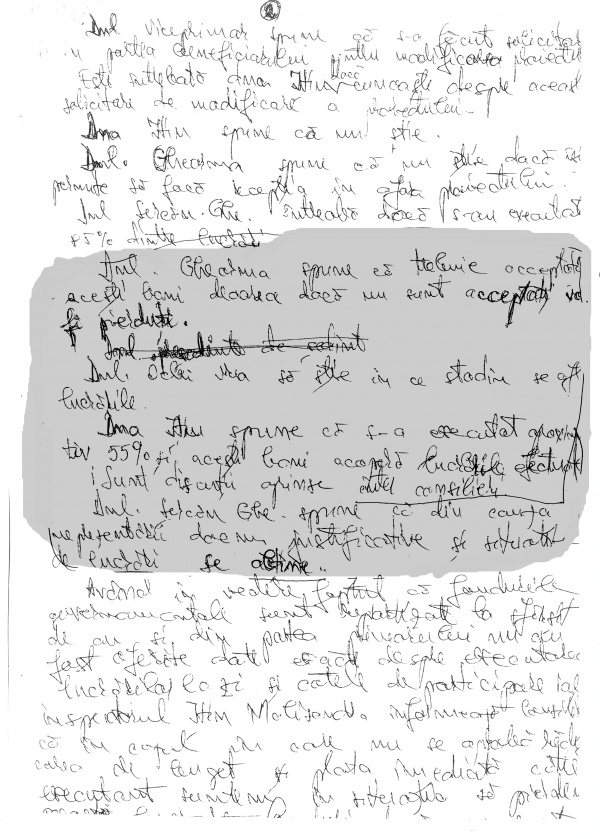 2
Dnl Viceprimar spune că s-a făcut solicitare
din partea beneficiarului pentru modificarea proiectului
Este întrebată dna Hîn dacă cunoaște despre această
solicitare de modificare a proiectului.
Dna Hîn spune că nu știe.
Dnl. Ghearma spune că nu știe dacă își
permite să facă recepția în afara proiectului.
Dnl Sercăn Ghe. întreabă dacă s-au executat
85% dintre lucrări
Dnl. Ghearma spune că trebuie acceptați
acești bani deoarece dacă nu sunt acceptați vor
fi pierduți.
Dnl. vrea să știe în ce stadiu se află
lucrările.
Dna Hîn spune că s-a executat aproxima
tiv 55% și acești bani acoperă lucrările efectuate
Sunt discuții aprinse între consilieri.
Dnl. Sercăn Ghe. spune că din cauza
neprezentării doc. justificative și situații
de lucrări se abține.
Având în vedere faptul că fondurile
guvernamentale sunt repartizate la sfârșit
de an și din partea primarului nu au
fost oferite date exacte despre executarea
lucrărilor la zi și cotele de participare iar
inspectorul Hîn informează consilierii
că în cazul în care nu se aprobă
de buget și plata imediată către
executant suntem în situația să pierdem